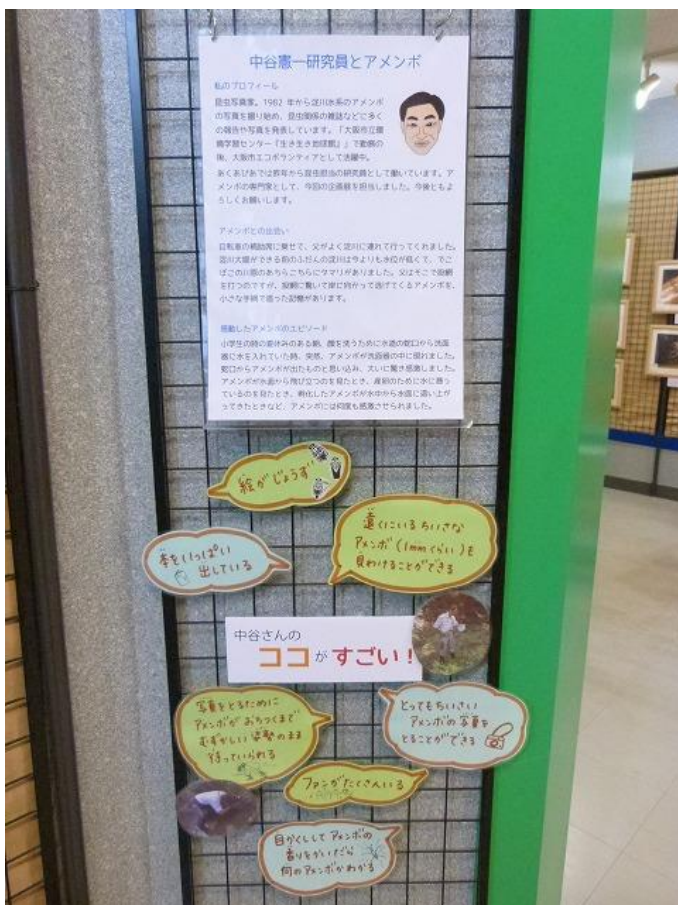 中谷憲一研究員とアメンボ
私のプロフィール
昆虫写真家。1982 年から淀川水系のアメンボ
の写真を撮り始め、昆虫関係の雑誌などに多く
の報告や写真を発表しています。「大阪市立環
境学習センター「生き生き地球館」」で勤務の
後、大阪市エコボランティアとして活躍中。
あくあぴあでは昨年から昆虫担当の研究員として働いています。ア
メンボの専門家として、今回の企画展を担当しました。今後ともよ
ろしくお願いします。
アメンボとの出会い
自転車の補助席に乗せて、父がよく淀川に連れて行ってくれました。
淀川大堰ができる前のふだんの淀川は今よりも水位が低くて、でこ
ぼこの川原のあちらこちらにタマリがありました。父はそこで投網
を打つのですが、投網に驚いて岸に向かって逃げてくるアメンボを、
小さな手網で掬った記憶があります。
感動したアメンボのエピソード
小学生の時の夏休みのある朝、顔を洗うために水道の蛇口から洗面
器に水を入れていた時、突然、アメンボが洗面器の中に現れました。
蛇口からアメンボが出たものと思い込み、大いに驚き感激しました。
アメンボが水面から飛び立つのを見たとき、産卵のために水に潜っ
ているのを見たとき、孵化したアメンボが水中から水面に這い上が
ってきたときなど、アメンボには何度も感激させられました。
絵がじょうず
遠くにいるちいさな
アメンボ(1mmくらい)も
見わけることができる
本をいっぱい
出している
中谷さんの
ココがすごい!
写真をとるために
アメンボがおちつくまで
むずかしい姿勢のまま
待っていられる
とってもちいさい
アメンボの写真を
とることができる
ファンがたくさんいる
目かくししてアメンボの
香りをかいだら
何のアメンボかわかる